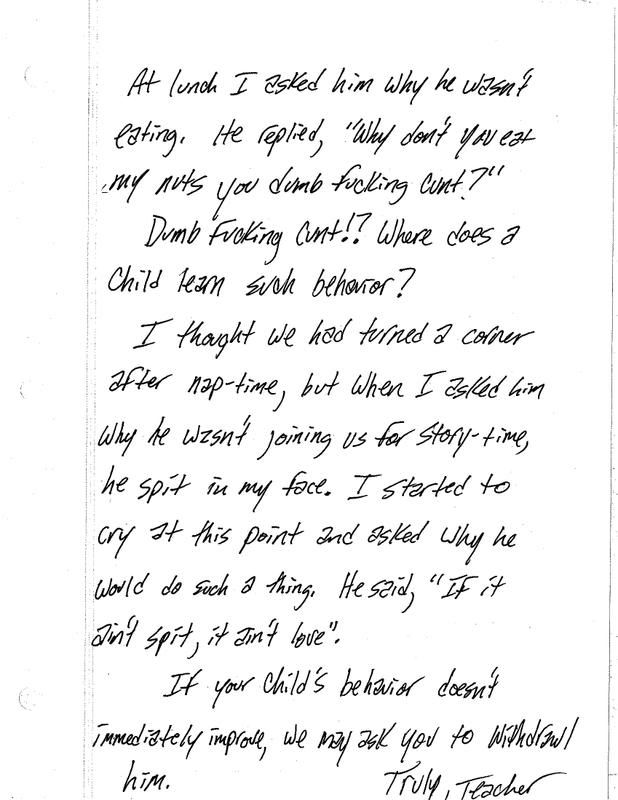 At lunch I asked him why he wasn't
eating. He replied, "Why don't you eat
my nuts you dumb fucking cunt?"
Dumb Fucking Cunt!? Where does a
Child learn such behavior?
I thought we had turned a corner
after nap-time, but when I asked him
why he wasn't joining us for story-time,
he spit in my face. I started to
cry at this point and asked why he
would do such a thing. He said, "If it
ain't spit, it ain't love".
If your child's behavior doesn't
immediately improve, we may ask you to withdrawl
him. Truly, Teacher